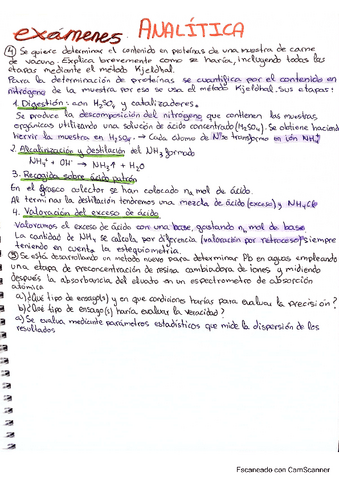 exámenes ANALÍTICA
④ Se quiere determinar el contenido en proteínas de una muestra de carne
de vacuno. Explica brevemente como se haría, incluyendo todas las
etapas mediante el método Kjeldhal.
Para la determinación de proteínas se cuantifica por el contenido en
nitrógeno de la muestra por eso se usa el método Kjeldhal. Sus etapas:
1. Digestión: con H₂SO₄ y catalizadores.
Se produce la descomposición del nitrógeno que contienen las muestras
orgánicas utilizando una solución de ácido concentrado (H₂SO₄). Se obtiene haciendo
hervir la muestra en H₂SO₄. → Cada átomo de N se transforma en ión NH₄⁺
2. Alcalinización y destilación del NH₃ formado
NH₄⁺ + OH⁻ → NH₃↑ + H₂O
3. Recogida sobre ácido patrón
En el frasco colector se han colocado n₁ mol de ácido.
Al terminar la destilación tendremos una mezcla de ácido (exceso) y NH₄Cl
4. Valoración del exceso de ácido
Valoramos el exceso de ácido con una base, gastando n₂ mol de base
La cantidad de NH₃ se calcula por diferencia (valoración por retroceso) siempre
teniendo en cuenta la estequiometría
⑤ Se está desarrollando un método nuevo para determinar Pb en aguas empleando
una etapa de preconcentración de resina cambiadora de iones y midiendo
después la absorbancia del eluato en un espectrómetro de absorción
atómica
a) ¿Qué tipo de ensayo(s) y en que condiciones harías para evaluar la precisión?
b) ¿Qué tipo de ensayo(s) haría evaluar la veracidad?
a) Se evalua mediante parámetros estadísticos que mide la dispersión de los
resultados
Escaneado con CamScanner